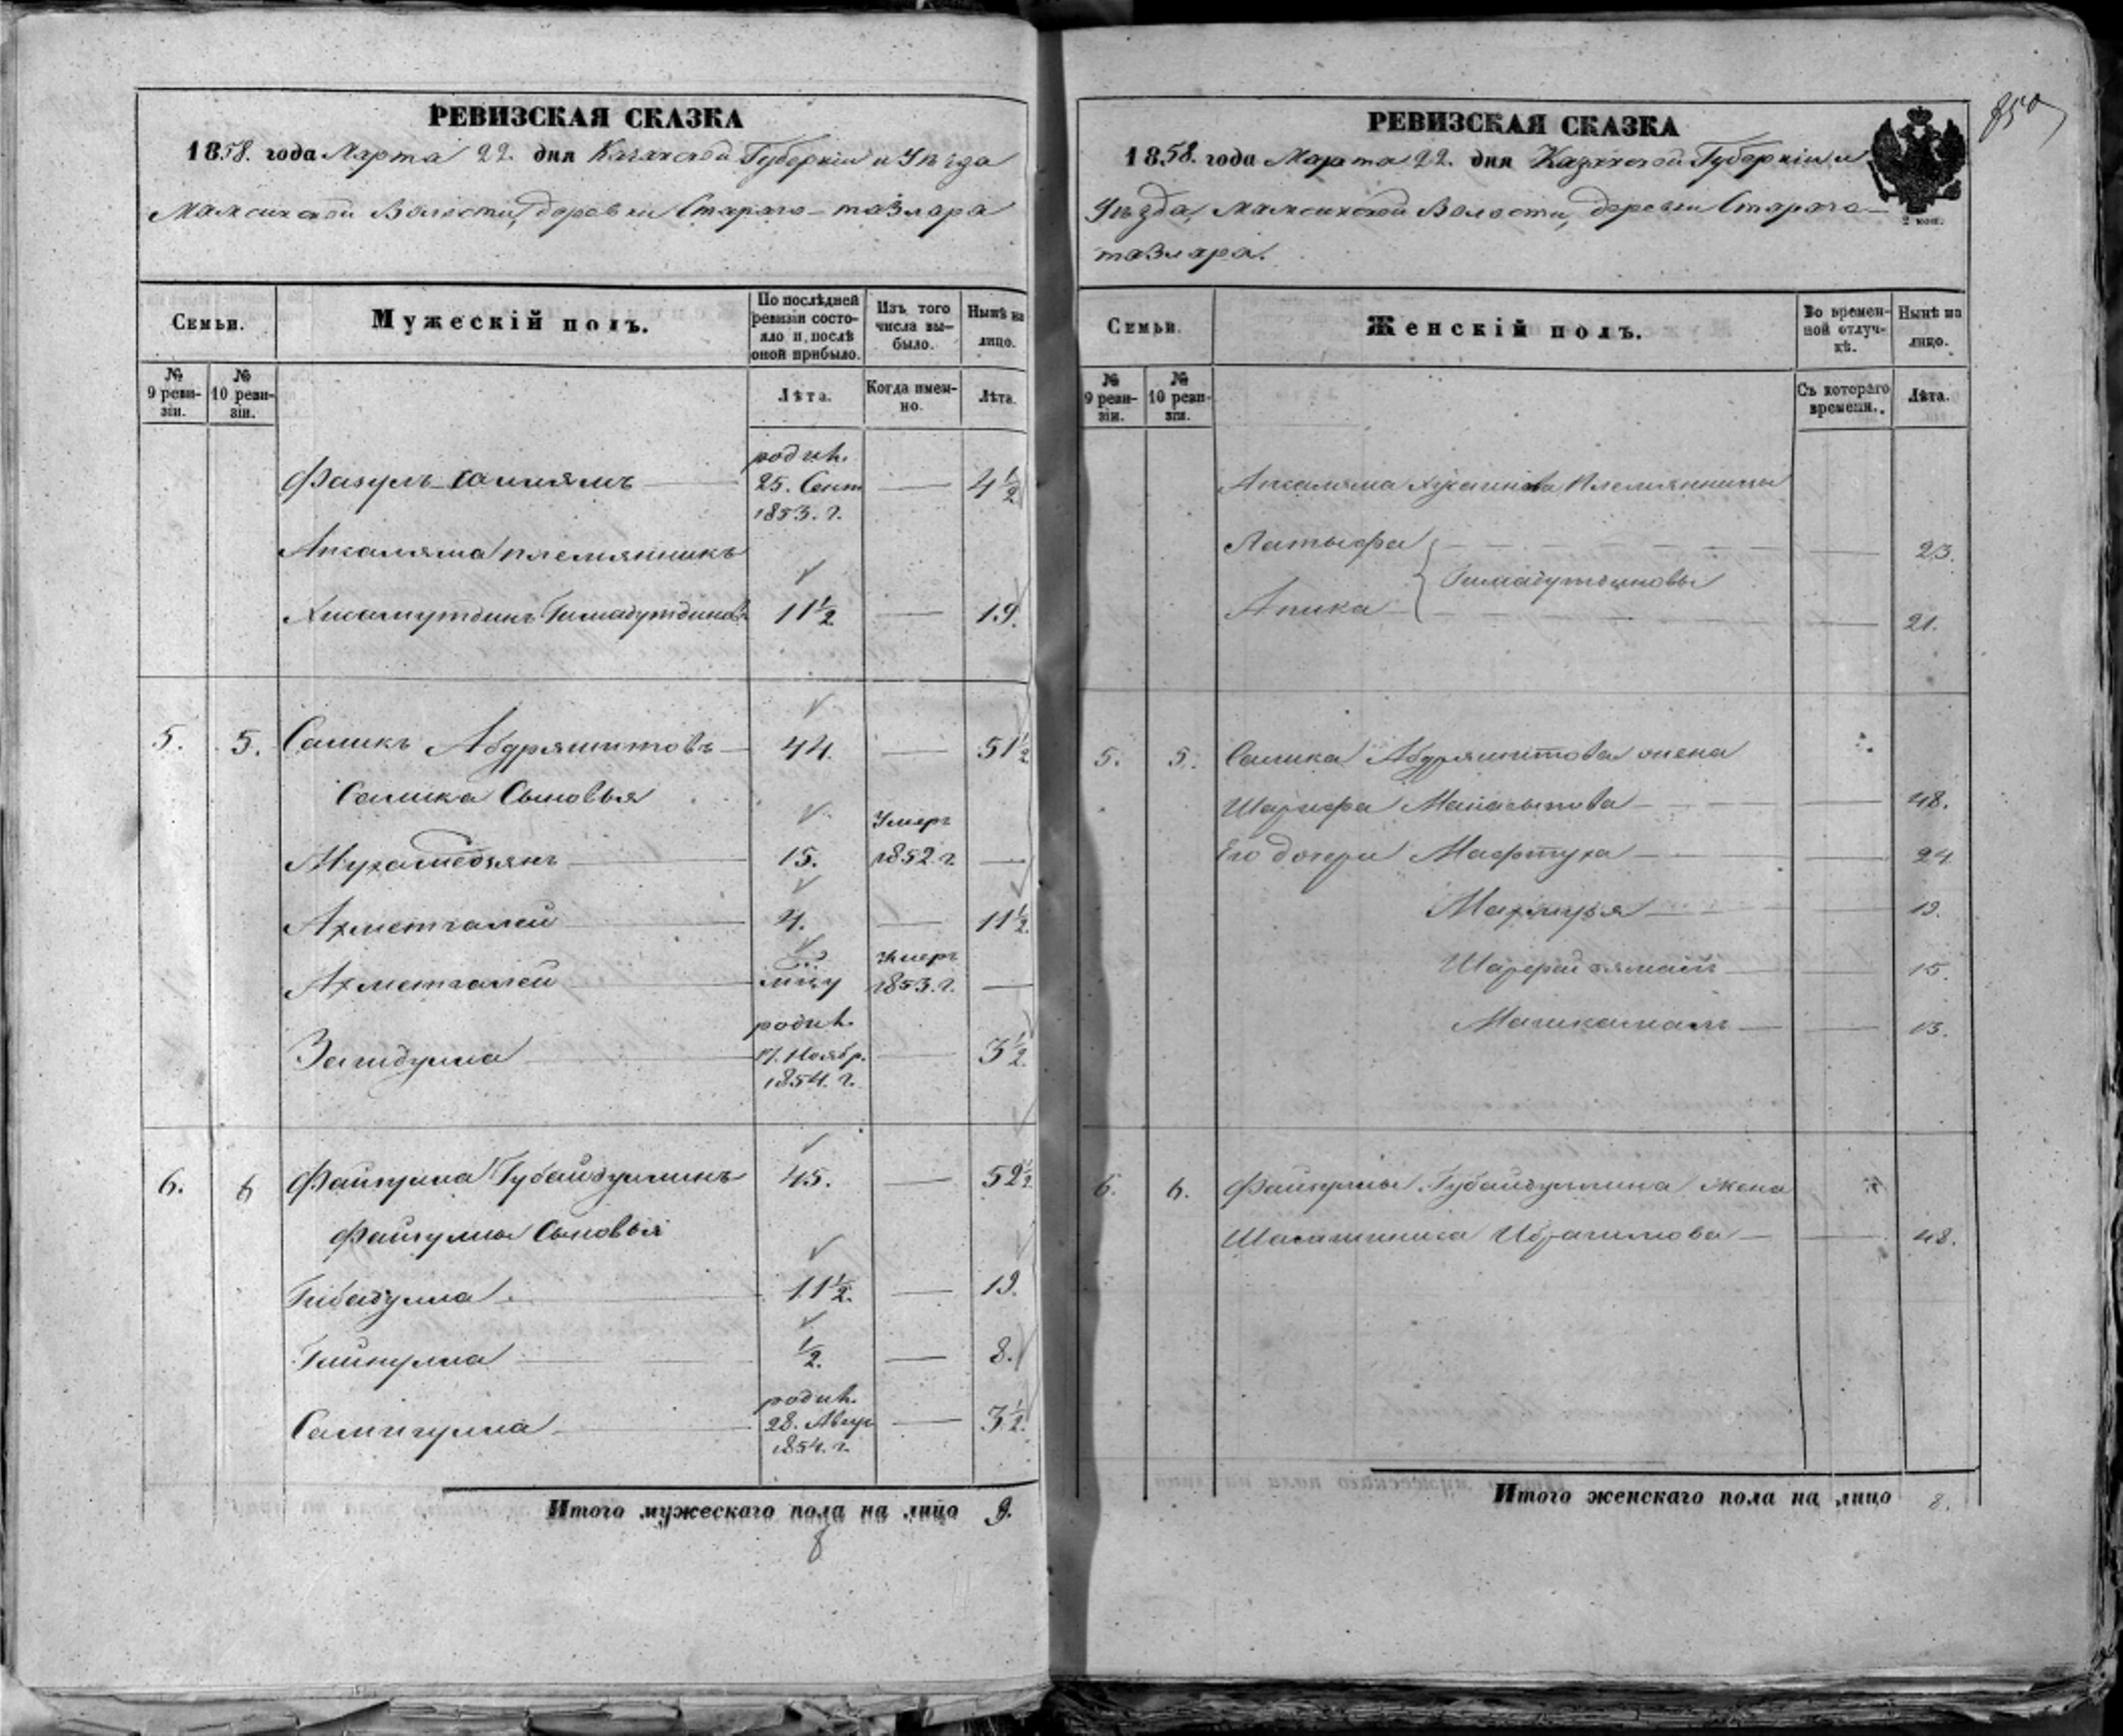 РЕВИЗСКАЯ СКАЗКА
1858. года Марта 22. дня Казанской Губернiи и Уѣзда
Мамсинской Волости, деревни Стараго-тазлара
Семьи.
Мужескiй полъ.
По послѣдней ревизiи состояло и послѣ оной прибыло.
Изъ того числа выбыло.
Нынѣ на лицо.
№ 9 ревизiи.
№ 10 ревизiи.
Лѣта.
Когда именно.
Лѣта.
родил.
Фазулъ — 25. Сент — 4 1/2
1853. г.
Апсаляма племянникъ
Хисамутдинъ Гимадутдиновъ 11 1/2 — 19.
5. 5. Саликъ Абдряшитовъ — 44. — 51 1/2
Салика Сыновья
Умеръ
Мухаметзянъ — 15. 1852. г —
Ахметгалей — 4. — 11 1/2
Умеръ
Ахметгалей — 1853. г. —
родил.
Загидулла — 17. Ноябр. — 3 1/2
1854. г.
6. 6 Файзулла Губайдуллинъ 45. — 52 1/2
Файзуллы Сыновья
Гибадулла — 11 1/2. — 19.
— 1/2. — 8.
родил.
Самигулла — 28. Авгус — 3 1/2.
1854. г.
Итого мужескаго пола на лицо 9.
8
850
РЕВИЗСКАЯ СКАЗКА
1858. года Марта 22. дня Казанской Губернiи и
Уѣзда, Мамсинской Волости, деревни Стараго-
тазлара.
2 коп.
Семьи.
Женскiй полъ.
Во временной отлучкѣ.
Нынѣ на лицо.
№ 9 ревизiи.
№ 10 ревизiи.
Съ котораго времени.
Лѣта.
Апсаляма Племянницы
Латыфа — — 23.
Гимадутдиновы
Апика — — 21.
5. 5. Салика Абдряшитова жена
Шарифа — — 48.
Его дочери Мафтуха — — 24.
— — 19.
— — 15.
— — 13.
6. 6. Файзуллы Губайдуллина жена
Ибрагимова — — 48.
Итого женскаго пола на лицо 8.